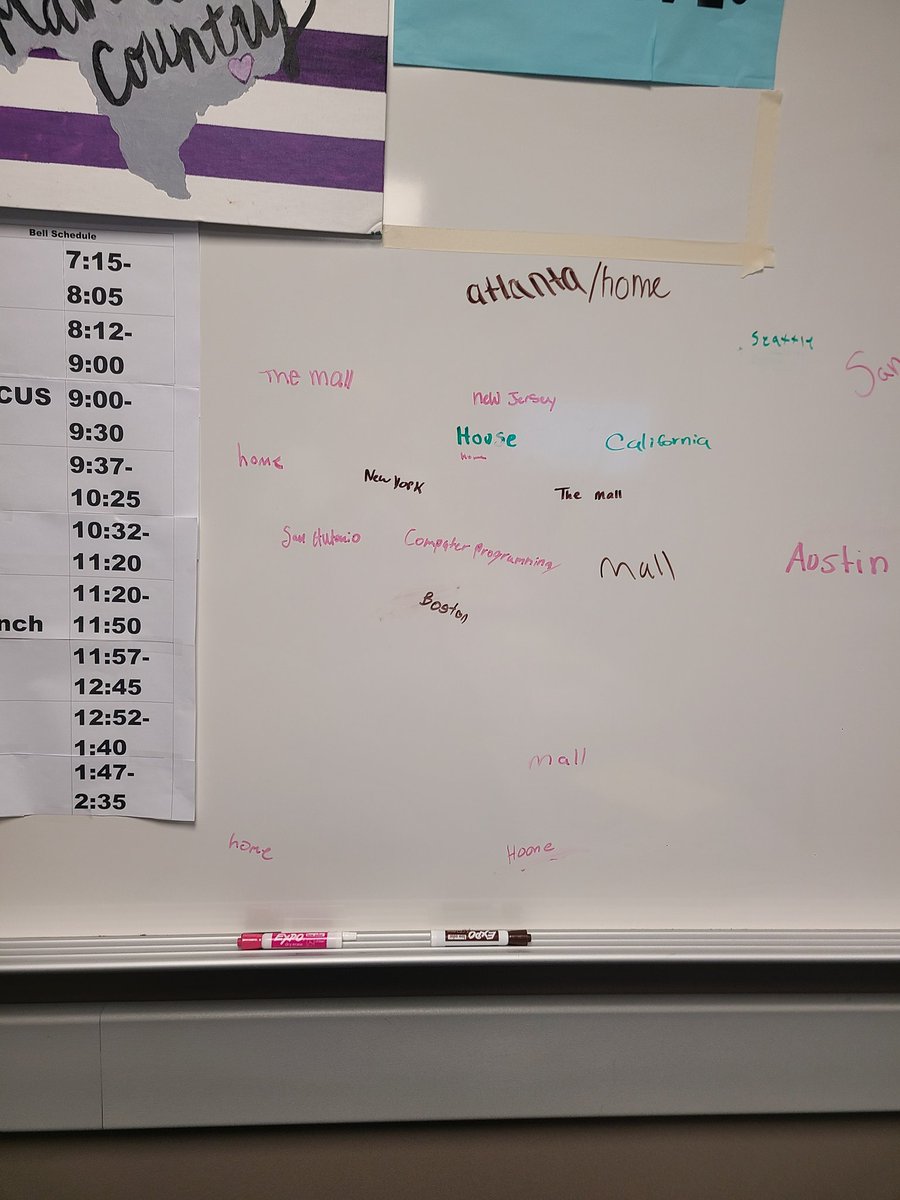 Country
Bell Schedule
7:15-
8:05
8:12-
9:00
CUS 9:00-
9:30
9:37-
10:25
10:32-
11:20
11:20-
nch 11:50
11:57-
12:45
12:52-
1:40
1:47-
2:35
atlanta/home
Seattle
San
The mall
new Jersey
House
California
home
home
New York
The mall
San Antonio
Computer programming
mall
Austin
Boston
mall
home
Hoone
EXPO
EXPO